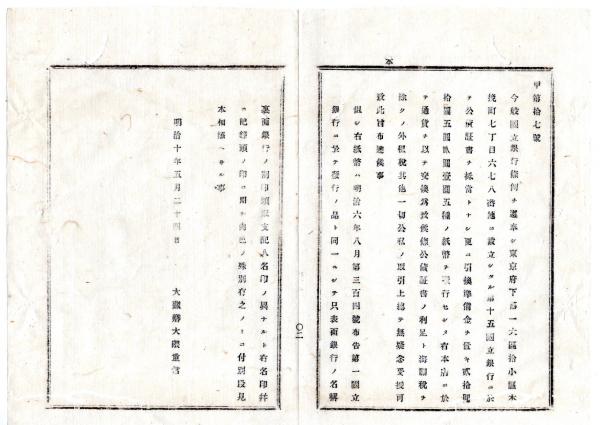 甲第拾七號
今般國立銀行條例ヲ遵奉シ東京府下第一大區拾小區木
挽町七丁目六七八番地ニ設立シタル第十五國立銀行ニ於
テ公債証書ヲ抵當トナシ更ニ引換準備金ヲ置キ貳拾圓
拾圓五圓貳圓壹圓五種ノ紙幣ヲ發行セシメ有本店ニ於
テ通貨ヲ以テ交換爲致候條公債証書ノ利足ト海關税ヲ
除クノ外租税其他一切公私ノ取引上總テ無疑念受授可
致此旨布達候事
但シ右紙幣ハ明治六年八月第三百四號布告第一國立
銀行ニ於テ發行ノ品ト同一ニシテ只表面銀行ノ名稱
裏面銀行ノ割印頭取支配人名印ノ異ナルト右名印幷
ニ記番頭ノ印
ノ殊別有之ノミニ付別段見
本相添ヘサル事
明治十年五月二十四日
大藏卿大隈重信